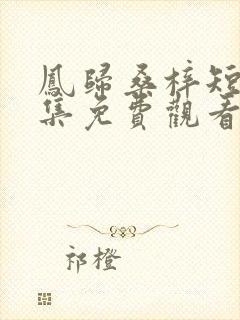 鳳歸桑梓短
集免費觀看
祁橙